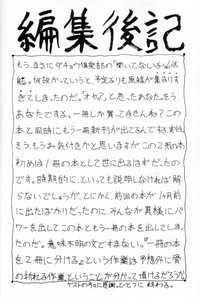 編集後記
もう、まさにダチョウ倶楽部の「聞いてないよォ」状
態。何故かっていうと、予定よりも原稿が集まりす
ぎてしまったのだ。「オヤ?」と思ったあなた。そう
あなたですよ。一冊しか買ってきてんね？この
本と同時にもう一冊新刊が出てるんですよ実は
もう、もうお気付きかと思いますが、この2冊の本
初めは1冊の本として世に出るはずだったの
です。時期的に…といっても説明しなければ解
らないでしょうが、とにかく、前回の本が1ヶ月前
に出たばかりだったのに、そんなが異様にパ
ワーを出してこの本ともう一冊の本を出してしま
たのだ。意味不明の文ですまない。『一冊の本
を2冊に分ける』という作業は予想外に骨
の折れる作業ということが分かって頂けるだろうか。
ゲストの方々に感謝。ということで終わる。